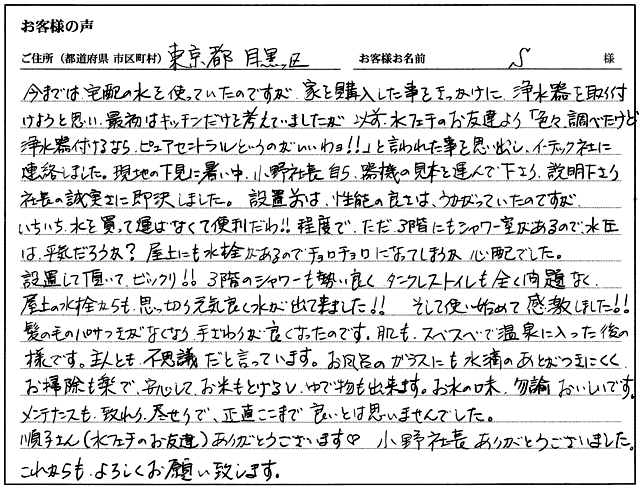 お客様の声
ご住所（都道府県 市区町村） 東京都 目黒区 お客様お名前 S 様
今までは宅配の水を使っていたのですが、家を購入した事をきっかけに、浄水器を取り付
けようと思い、最初はキッチンだけを考えていましたが、以前、水フェチのお友達より「色々調べたけど
浄水器付けるなら、ピュアセントラルというのがいいわョ!!」と言われた事を思い出し、イーテック社に
連絡しました。現地の下見に暑い中、小野社長自ら、器機の見本を運んで下さり、説明下さり
社長の誠実さに即決しました。設置前は、性能の良さは、うかがっていたのですが、
いちいち、水を買って運ばなくて便利だわ!! 程度で、ただ、3階にもシャワー室があるので水圧
は、平気だろうか？屋上にも水栓があるのでチョロチョロになってしまうか心配でした。
設置して頂いて、ビックリ!! 3階のシャワーも勢い良く、タンクレストイレも全く問題なく、
屋上の水栓からも、思っ切り元気良く水が出て来ました!! そして使い始めて感激しました!!
髪の毛のパサつきがなくなり、手ざわりが良くなったのです。肌も、スベスベで温泉に入った後の
様です。主人とも、不思議だと言っています。お風呂のガラスにも水滴のあとがつきにくく、
お掃除も楽で、安心して、お米もとげるし、ゆで物も出来ます。お水の味、勿論おいしいです。
メンテナスも、致れり、尽せりで、正直ここまで良いとは思いませんでした。
順子さん（水フェチのお友達）ありがとうございます♡ 小野社長ありがとうございました。
これからも、よろしくお願い致します。